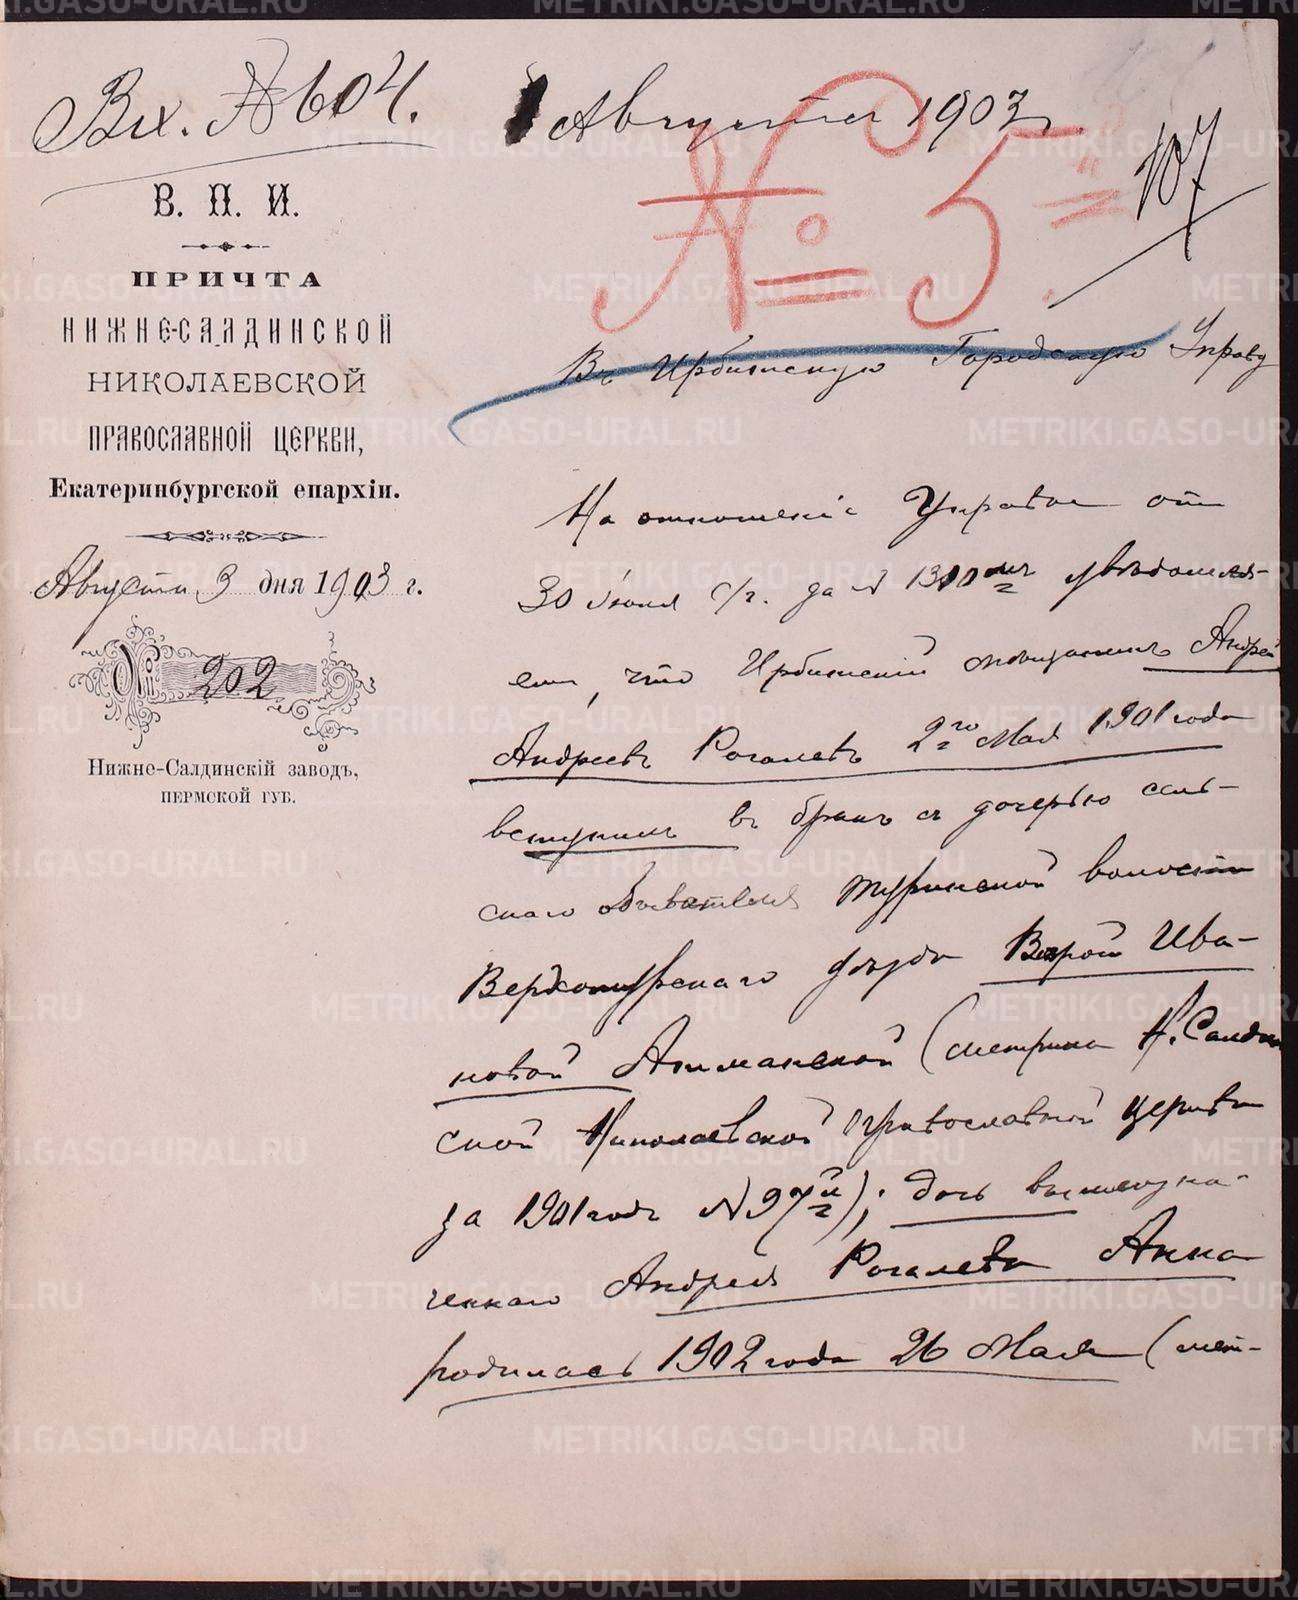 Вх. № 604.
Августа 1903 г.
№ 5
107
В. П. И.
ПРИЧТА
НИЖНЕ-САЛДИНСКОЙ
НИКОЛАЕВСКОЙ
ПРАВОСЛАВНОЙ ЦЕРКВИ,
Екатеринбургской епархіи.
Августа 3 дня 1903 г.
№ 202
Нижне-Салдинскій заводъ,
ПЕРМСКОЙ ГУБ.
Въ Ирбитскую Городскую Управу
На отношеніе Управы отъ
30 Іюля с/г. за № увѣдомля-
емъ, что Ирбитскій мѣщанинъ Андрей
Андреевъ Рогалевъ 2го Мая 1901 года
вступилъ въ бракъ съ дочерью сель-
скаго обывателя Туринской волости
Верхотурскаго уѣзда Вѣрой Ива-
новой (метрика Н. Салдин
ской Николаевской православной церкви
за 1901 годъ № 97й); дочь вышеозна-
ченнаго Андрея Рогалева Анна
родилась 1902 года 26 Мая (мет-
METRIKI.GASO-URAL.RU